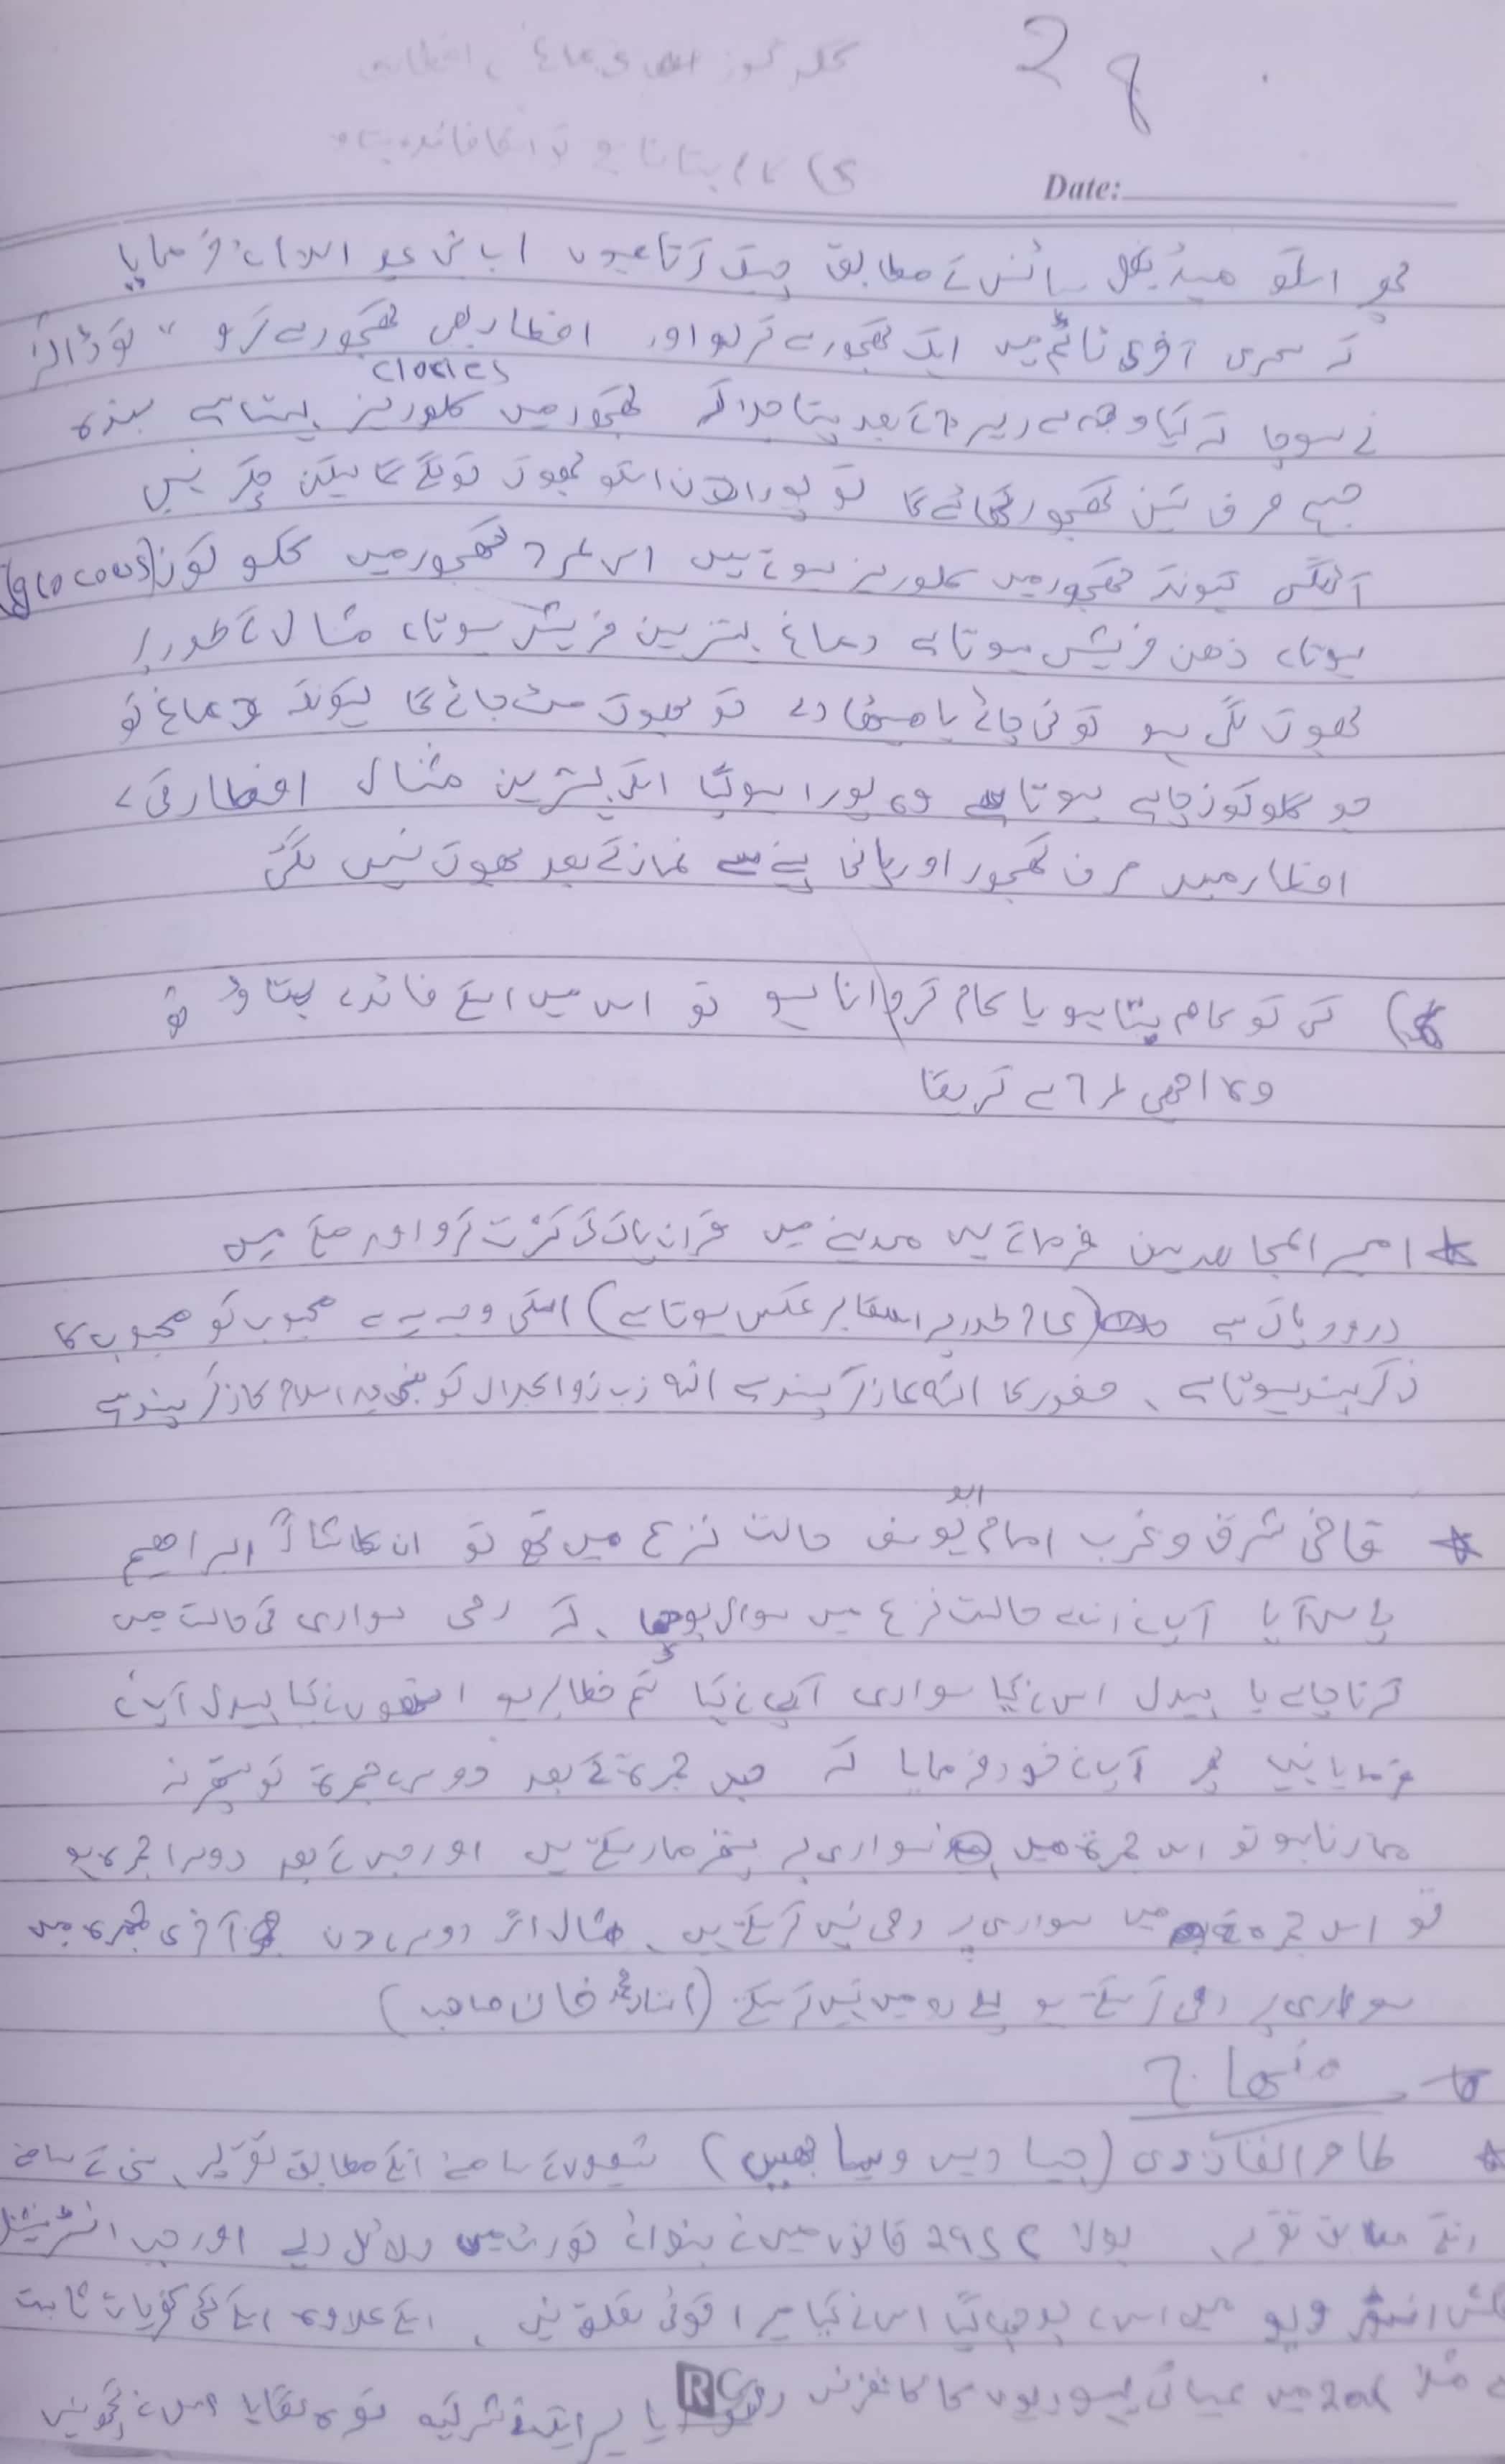 گلوکوز
29
Date:
میڈیکل سائنس کے مطابق چیک کرتا ہوں اب نبی علیہ السلام نے فرمایا
کہ سحری آخری ٹائم میں ایک کھجور سے کرلو اور افطار بھی کھجور سے کرو تو ڈاکٹر
clories
نے سوچا کہ کیا وجہ ہے ریسرچ کے بعد پتا چلا کہ کھجور میں کلوریز ہوتا ہے بندہ
جب صرف تین کھجور کھائے گا تو پورا دن اسکو بھوک تو لگے گا لیکن چکر نہیں
آئنگے کیونکہ کھجور میں کلوریز ہوتے ہیں اس طرح کھجور میں گلوکوز (glocous)
ہوتا ہے ذھن فریش ہوتا ہے دماغ بہترین فریش ہوتا ہے مثال کے طور پر
بھوک لگی ہو کوئی چائے یا میٹھا دے تو بھوک مٹ جائے گا کیونکہ دماغ کو
جو گلوکوز چاہیے ہوتا ہے وہ پورا ہوگیا اسکی بہترین مثال افطار کی ہے
افطار میں صرف کھجور اور پانی پینے سے نماز کے بعد بھوک نہیں لگتی
کسی کو کام بتا ہو یا کام کروانا ہو تو اس میں اسکے فائدے بتاؤ تو
وہ اچھی طرح سے کریگا
* امیر المجاھدین فرماتے ہیں مدینے میں قرآن پاک کی کثرت کرو اور مکے میں
درود پاک سے (عام طور پر اسکا برعکس ہوتا ہے) اسکی وجہ یہ ہے محبوب کو محبوب کا
ذکر پسند ہوتا ہے، حضور کا اللہ کا ذکر پسند ہے اللہ رب ذوالجلال کو نبی علیہ السلام کا ذکر پسند ہے
ابو
* قاضی شرق و غرب امام یوسف حالت نزع میں تھے تو ان کا شاگرد ابراھیم
پاس آیا آپ نے ان سے حالت نزع میں سوال پوچھا کہ رمی سواری کی حالت میں
کرنا چاہیے یا پیدل اس نے کہا سواری آپ نے کہا تم خطا پر ہو انھوں نے کہا پیدل آپ نے
فرمایا نہیں پھر آپ نے خود فرمایا کہ جس جمرۃ کے بعد دوسرے جمرۃ کو پتھر نہ
مارنا ہو تو اس جمرۃ میں سواری پر پتھر مار سکتے ہیں اور جس کے بعد دوسرا جمرہ ہو
تو اس جمرۃ میں سواری پر رمی نہیں کر سکتے ہیں، مثال اگر دوسرے دن آخری جمرہ میں
سواری پر رمی کر سکتے ہو پہلے دو میں نہیں کر سکتے (استاد محمد خان صاحب)
* منھاج
* طاھر القادری (جیسا دیس ویسا بھیس) شیعوں کے سامنے انکے مطابق تقریر، سنی کے سامنے
انکے مطابق تقریر، بولا 295C قانون میں نے بنوائے کورٹ میں دلائل دیے اور جب انٹرنیشنل
انٹرویو میں اس سے پوچھا گیا اس نے کہا میرا کوئی تعلق نہیں، اسکے علاوہ اسکے کئی کفریات ثابت
میں عیسائی یہودیوں کا کانفرنس